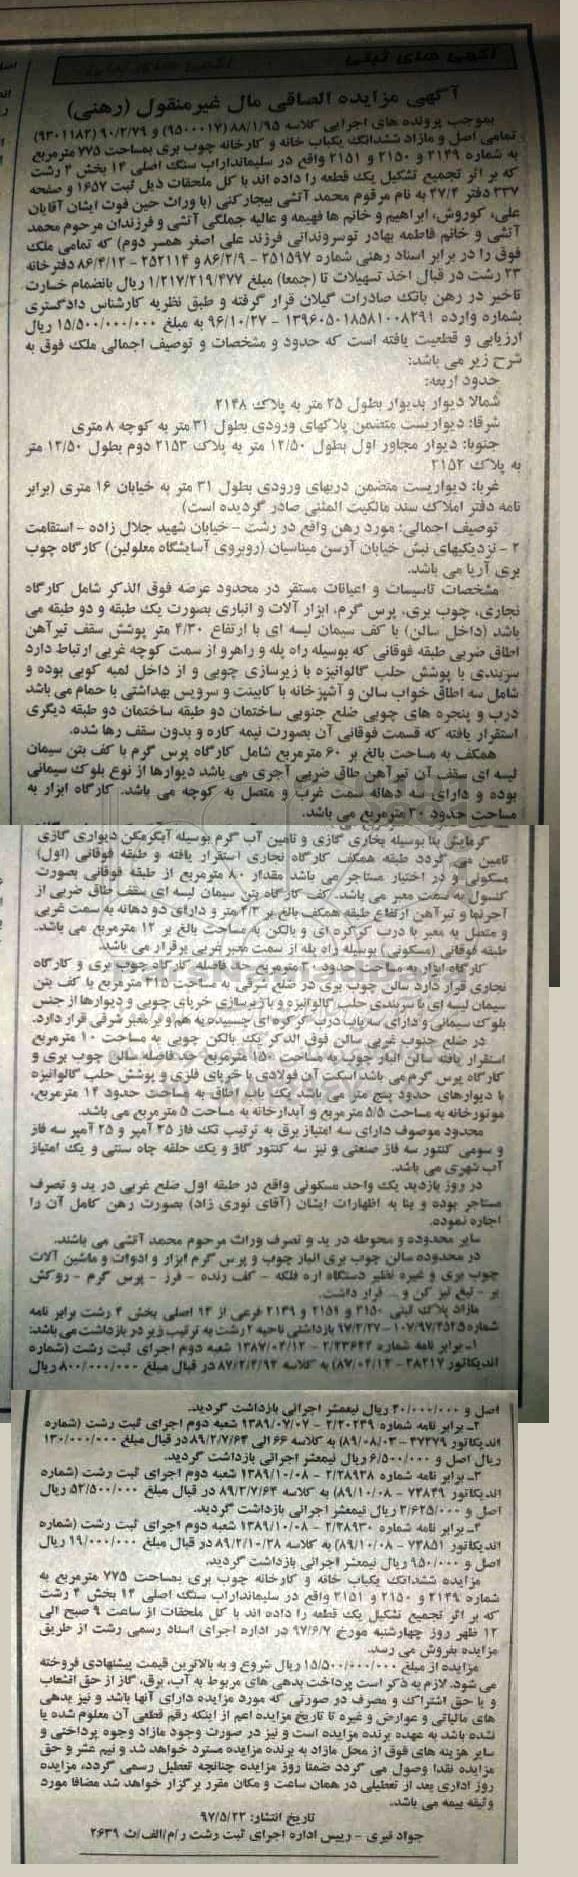 آگهی های ثبتی
آگهی مزایده الصاقی مال غیرمنقول (رهنی)
بموجب پرونده های اجرایی کلاسه ۸۸/۱/۹۵ (۹۵۰۰۰۱۷) و ۹۰/۲/۷۹ (۹۳۰۱۱۸۲)
تمامی اصل و مازاد ششدانگ یکباب خانه و کارخانه چوب بری بمساحت ۷۷۵ مترمربع
به شماره ۲۱۴۹ و ۲۱۵۰ و ۲۱۵۱ واقع در سلیمانداراب سنگ اصلی ۱۴ بخش ۴ رشت
که بر اثر تجمیع تشکیل یک قطعه را داده اند با کل ملحقات ذیل ثبت ۱۶۵۷ و صفحه
۳۳۷ دفتر ۴۷/۴ به نام مرقوم محمد آتشی بیجارکنی (با وراث حین فوت ایشان آقایان
علی، کوروش، ابراهیم و خانم ها فهیمه و عالیه جملگی آتشی و فرزندان مرحوم محمد
آتشی و خانم فاطمه بهادر توسروندانی فرزند علی اصغر همسر دوم) که تمامی ملک
فوق را در برابر اسناد رهنی شماره ۲۵۱۵۹۷ - ۸۶/۲/۹ و ۲۵۲۱۱۴ - ۸۶/۴/۱۲ دفترخانه
۲۳ رشت در قبال اخذ تسهیلات تا (جمعا) مبلغ ۱/۲۱۷/۲۱۹/۴۷۷ ریال بانضمام خسارت
تاخیر در رهن بانک صادرات گیلان قرار گرفته و طبق نظریه کارشناس دادگستری
بشماره وارده ۱۳۹۶۰۵۰۱۸۵۸۱۰۰۸۲۹۱ - ۹۶/۱۰/۲۷ به مبلغ ۱۵/۵۰۰/۰۰۰/۰۰۰ ریال
ارزیابی و قطعیت یافته است که حدود و مشخصات و توصیف اجمالی ملک فوق به
شرح زیر می باشد:
حدود اربعه:
شمالا دیوار بدیوار بطول ۲۵ متر به پلاک ۲۱۴۸
شرقا: دیواریست متضمن پلاکهای ورودی بطول ۳۱ متر به کوچه ۸ متری
جنوبا: دیوار مجاور اول بطول ۱۲/۵۰ متر به پلاک ۲۱۵۳ دوم بطول ۱۲/۵۰ متر
به پلاک ۲۱۵۲
غربا: دیواریست متضمن دربهای ورودی بطول ۳۱ متر به خیابان ۱۶ متری (برابر
نامه دفتر املاک سند مالکیت المثنی صادر گردیده است)
توصیف اجمالی: مورد رهن واقع در رشت - خیابان شهید جلال زاده - استقامت
۲ - نزدیکیهای نبش خیابان آرسن میناسیان (روبروی آسایشگاه معلولین) کارگاه چوب
بری آریا می باشد.
مشخصات تاسیسات و اعیانات مستقر در محدود عرصه فوق الذکر شامل کارگاه
نجاری، چوب بری، پرس گرم، ابزار آلات و انباری بصورت یک طبقه و دو طبقه می
باشد (داخل سالن) با کف سیمان لیسه ای با ارتفاع ۴/۳۰ متر پوشش سقف تیرآهن
اطاق ضربی طبقه فوقانی که بوسیله راه پله و راهرو از سمت کوچه غربی ارتباط دارد
سربندی با پوشش حلب گالوانیزه با زیرسازی چوبی و از داخل لمبه کوبی بوده و
شامل سه اطاق خواب سالن و آشپزخانه با کابینت و سرویس بهداشتی با حمام می باشد
درب و پنجره های چوبی ضلع جنوبی ساختمان دو طبقه ساختمان دو طبقه دیگری
استقرار یافته که قسمت فوقانی آن بصورت نیمه کاره و بدون سقف رها شده.
همکف به مساحت بالغ بر ۶۰ مترمربع شامل کارگاه پرس گرم با کف بتن سیمان
لیسه ای سقف آن تیرآهن طاق ضربی آجری می باشد دیوارها از نوع بلوک سیمانی
بوده و دارای سه دهانه سمت غرب و متصل به کوچه می باشد. کارگاه ابزار به
مساحت حدود ۳۰ مترمربع می باشد.
گرمایش بنا بوسیله بخاری گازی و تامین آب گرم بوسیله آبگرمکن دیواری گازی
تامین می گردد طبقه همکف کارگاه نجاری استقرار یافته و طبقه فوقانی (اول)
مسکونی و در اختیار مستاجر می باشد مقدار ۸۰ مترمربع از طبقه فوقانی بصورت
کنسول به سمت معبر می باشد. کف کارگاه بتن سیمان لیسه ای سقف طاق ضربی از
آجرنما و تیرآهن ارتفاع طبقه همکف بالغ بر ۴/۳ متر و دارای دو دهانه به سمت غربی
و متصل به معبر با درب کرکره ای و بالکن به مساحت بالغ بر ۱۲ مترمربع می باشد.
طبقه فوقانی (مسکونی) بوسیله راه پله از سمت معبر غربی برقرار می باشد.
کارگاه ابزار به مساحت حدود ۳۰ مترمربع حد فاصله کارگاه چوب بری و کارگاه
نجاری قرار دارد سالن چوب بری در ضلع شرقی به مساحت ۳۱۵ مترمربع با کف بتن
سیمان لیسه ای با سربندی حلب گالوانیزه و با زیرسازی خرپای چوبی و دیوارها از جنس
بلوک سیمانی و دارای سه باب درب کرکره ای چسبیده به هم و بر معبر شرقی قرار دارد.
در ضلع جنوب غربی سالن فوق الذکر یک بالکن چوبی به مساحت ۱۰ مترمربع
استقرار یافته سالن انبار چوب به مساحت ۱۵۰ مترمربع حد فاصله سالن چوب بری و
کارگاه پرس گرم می باشد اسکت آن فولادی با خرپای فلزی و پوشش حلب گالوانیزه
با دیوارهای حدود پنج متر می باشد یک باب اطاق به مساحت حدود ۱۲ مترمربع،
موتورخانه به مساحت ۵/۵ مترمربع و آبدارخانه به مساحت ۵ مترمربع می باشد.
محدود موصوف دارای سه امتیاز برق به ترتیب تک فاز ۳۵ آمپر و ۲۵ آمپر سه فاز
و سومی کنتور سه فاز صنعتی و نیز سه کنتور گاز و یک حلقه چاه سنتی و یک امتیاز
آب شهری می باشد.
در روز بازدید یک واحد مسکونی واقع در طبقه اول ضلع غربی در ید و تصرف
مستاجر بوده و بنا به اظهارات ایشان (آقای نوری زاد) بصورت رهن کامل آن را
اجاره نموده.
سایر محدوده و محوطه در ید و تصرف وراث مرحوم محمد آتشی می باشند.
در محدوده سالن چوب بری انبار چوب و پرس گرم ابزار و ادوات و ماشین آلات
چوب بری و غیره نظیر دستگاه اره فلکه - کف رنده - فرز - پرس گرم - روکش
بر - تیغ تیز کن و ... قرار داشت.
مازاد پلاک ثبتی ۲۱۵۰ و ۲۱۵۱ و ۲۱۴۹ فرعی از ۱۴ اصلی بخش ۴ رشت برابر نامه
شماره ۱۰۷/۹۷/۴۵۲۵ - ۹۷/۲/۲۷ بازداشتی ناحیه ۲ رشت به ترتیب زیر در بازداشت می باشد:
۱- برابر نامه شماره ۲/۲۳۶۴۴ - ۱۳۸۷/۰۴/۱۲ شعبه دوم اجرای ثبت رشت (شماره
اندیکاتور ۲۸۲۱۷ - ۸۷/۰۴/۱۳) به کلاسه ۸۷/۲/۴/۹۲ در قبال مبلغ ۸۰۰/۰۰۰/۰۰۰ ریال
اصل و ۴۰/۰۰۰/۰۰۰ ریال نیمعشر اجرائی بازداشت گردید.
۲- برابر نامه شماره ۲/۲۰۲۴۹ - ۱۳۸۹/۰۷/۰۷ شعبه دوم اجرای ثبت رشت (شماره
اندیکاتور ۴۷۲۷۹ - ۸۹/۰۸/۰۳) به کلاسه ۶۶ الی ۸۹/۲/۷/۶۴ در قبال مبلغ ۱۳۰/۰۰۰/۰۰۰
ریال اصل و ۶/۵۰۰/۰۰۰ ریال نیمعشر اجرائی بازداشت گردید.
۳- برابر نامه شماره ۲/۲۸۹۳۸ - ۱۳۸۹/۱۰/۰۸ شعبه دوم اجرای ثبت رشت (شماره
اندیکاتور ۷۴۸۴۹ - ۸۹/۱۰/۰۸) به کلاسه ۸۹/۲/۷/۶۴ در قبال مبلغ ۵۲/۵۰۰/۰۰۰ ریال
اصل و ۲/۶۲۵/۰۰۰ ریال نیمعشر اجرائی بازداشت گردید.
۴- برابر نامه شماره ۲/۲۸۹۳۰ - ۱۳۸۹/۱۰/۰۸ شعبه دوم اجرای ثبت رشت (شماره
اندیکاتور ۷۴۸۵۱ - ۸۹/۱۰/۰۸) به کلاسه ۸۹/۲/۱۰/۲۸ در قبال مبلغ ۱۹/۰۰۰/۰۰۰ ریال
اصل و ۹۵۰/۰۰۰ ریال نیمعشر اجرائی بازداشت گردید.
مزایده ششدانگ یکباب خانه و کارخانه چوب بری بمساحت ۷۷۵ مترمربع به
شماره ۲۱۴۹ و ۲۱۵۰ و ۲۱۵۱ واقع در سلیمانداراب سنگ اصلی ۱۴ بخش ۴ رشت
که بر اثر تجمیع تشکیل یک قطعه را داده اند با کل ملحقات از ساعت ۹ صبح الی
۱۲ ظهر روز چهارشنبه مورخ ۹۷/۶/۷ در اداره اجرای اسناد رسمی رشت از طریق
مزایده بفروش می رسد.
مزایده از مبلغ ۱۵/۵۰۰/۰۰۰/۰۰۰ ریال شروع و به بالاترین قیمت پیشنهادی فروخته
می شود. لازم به ذکر است پرداخت بدهی های مربوط به آب، برق، گاز از حق انشعاب
و یا حق اشتراک و مصرف در صورتی که مورد مزایده دارای آنها باشد و نیز بدهی
های مالیاتی و عوارض و غیره تا تاریخ مزایده اعم از اینکه رقم قطعی آن معلوم شده یا
نشده باشد به عهده برنده مزایده است و نیز در صورت وجود مازاد وجوه پرداختی و
سایر هزینه های فوق از محل مازاد به برنده مزایده مسترد خواهد شد و نیم عشر و حق
مزایده نقدا وصول می گردد ضمنا روز مزایده چنانچه تعطیل رسمی گردد، مزایده
روز اداری بعد از تعطیلی در همان ساعت و مکان مقرر برگزار خواهد شد مضافا مورد
وثیقه بیمه می باشد.
تاریخ انتشار: ۹۷/۵/۲۲
جواد نیری - رییس اداره اجرای ثبت رشت ر/م/الف/ث ۲۶۳۹